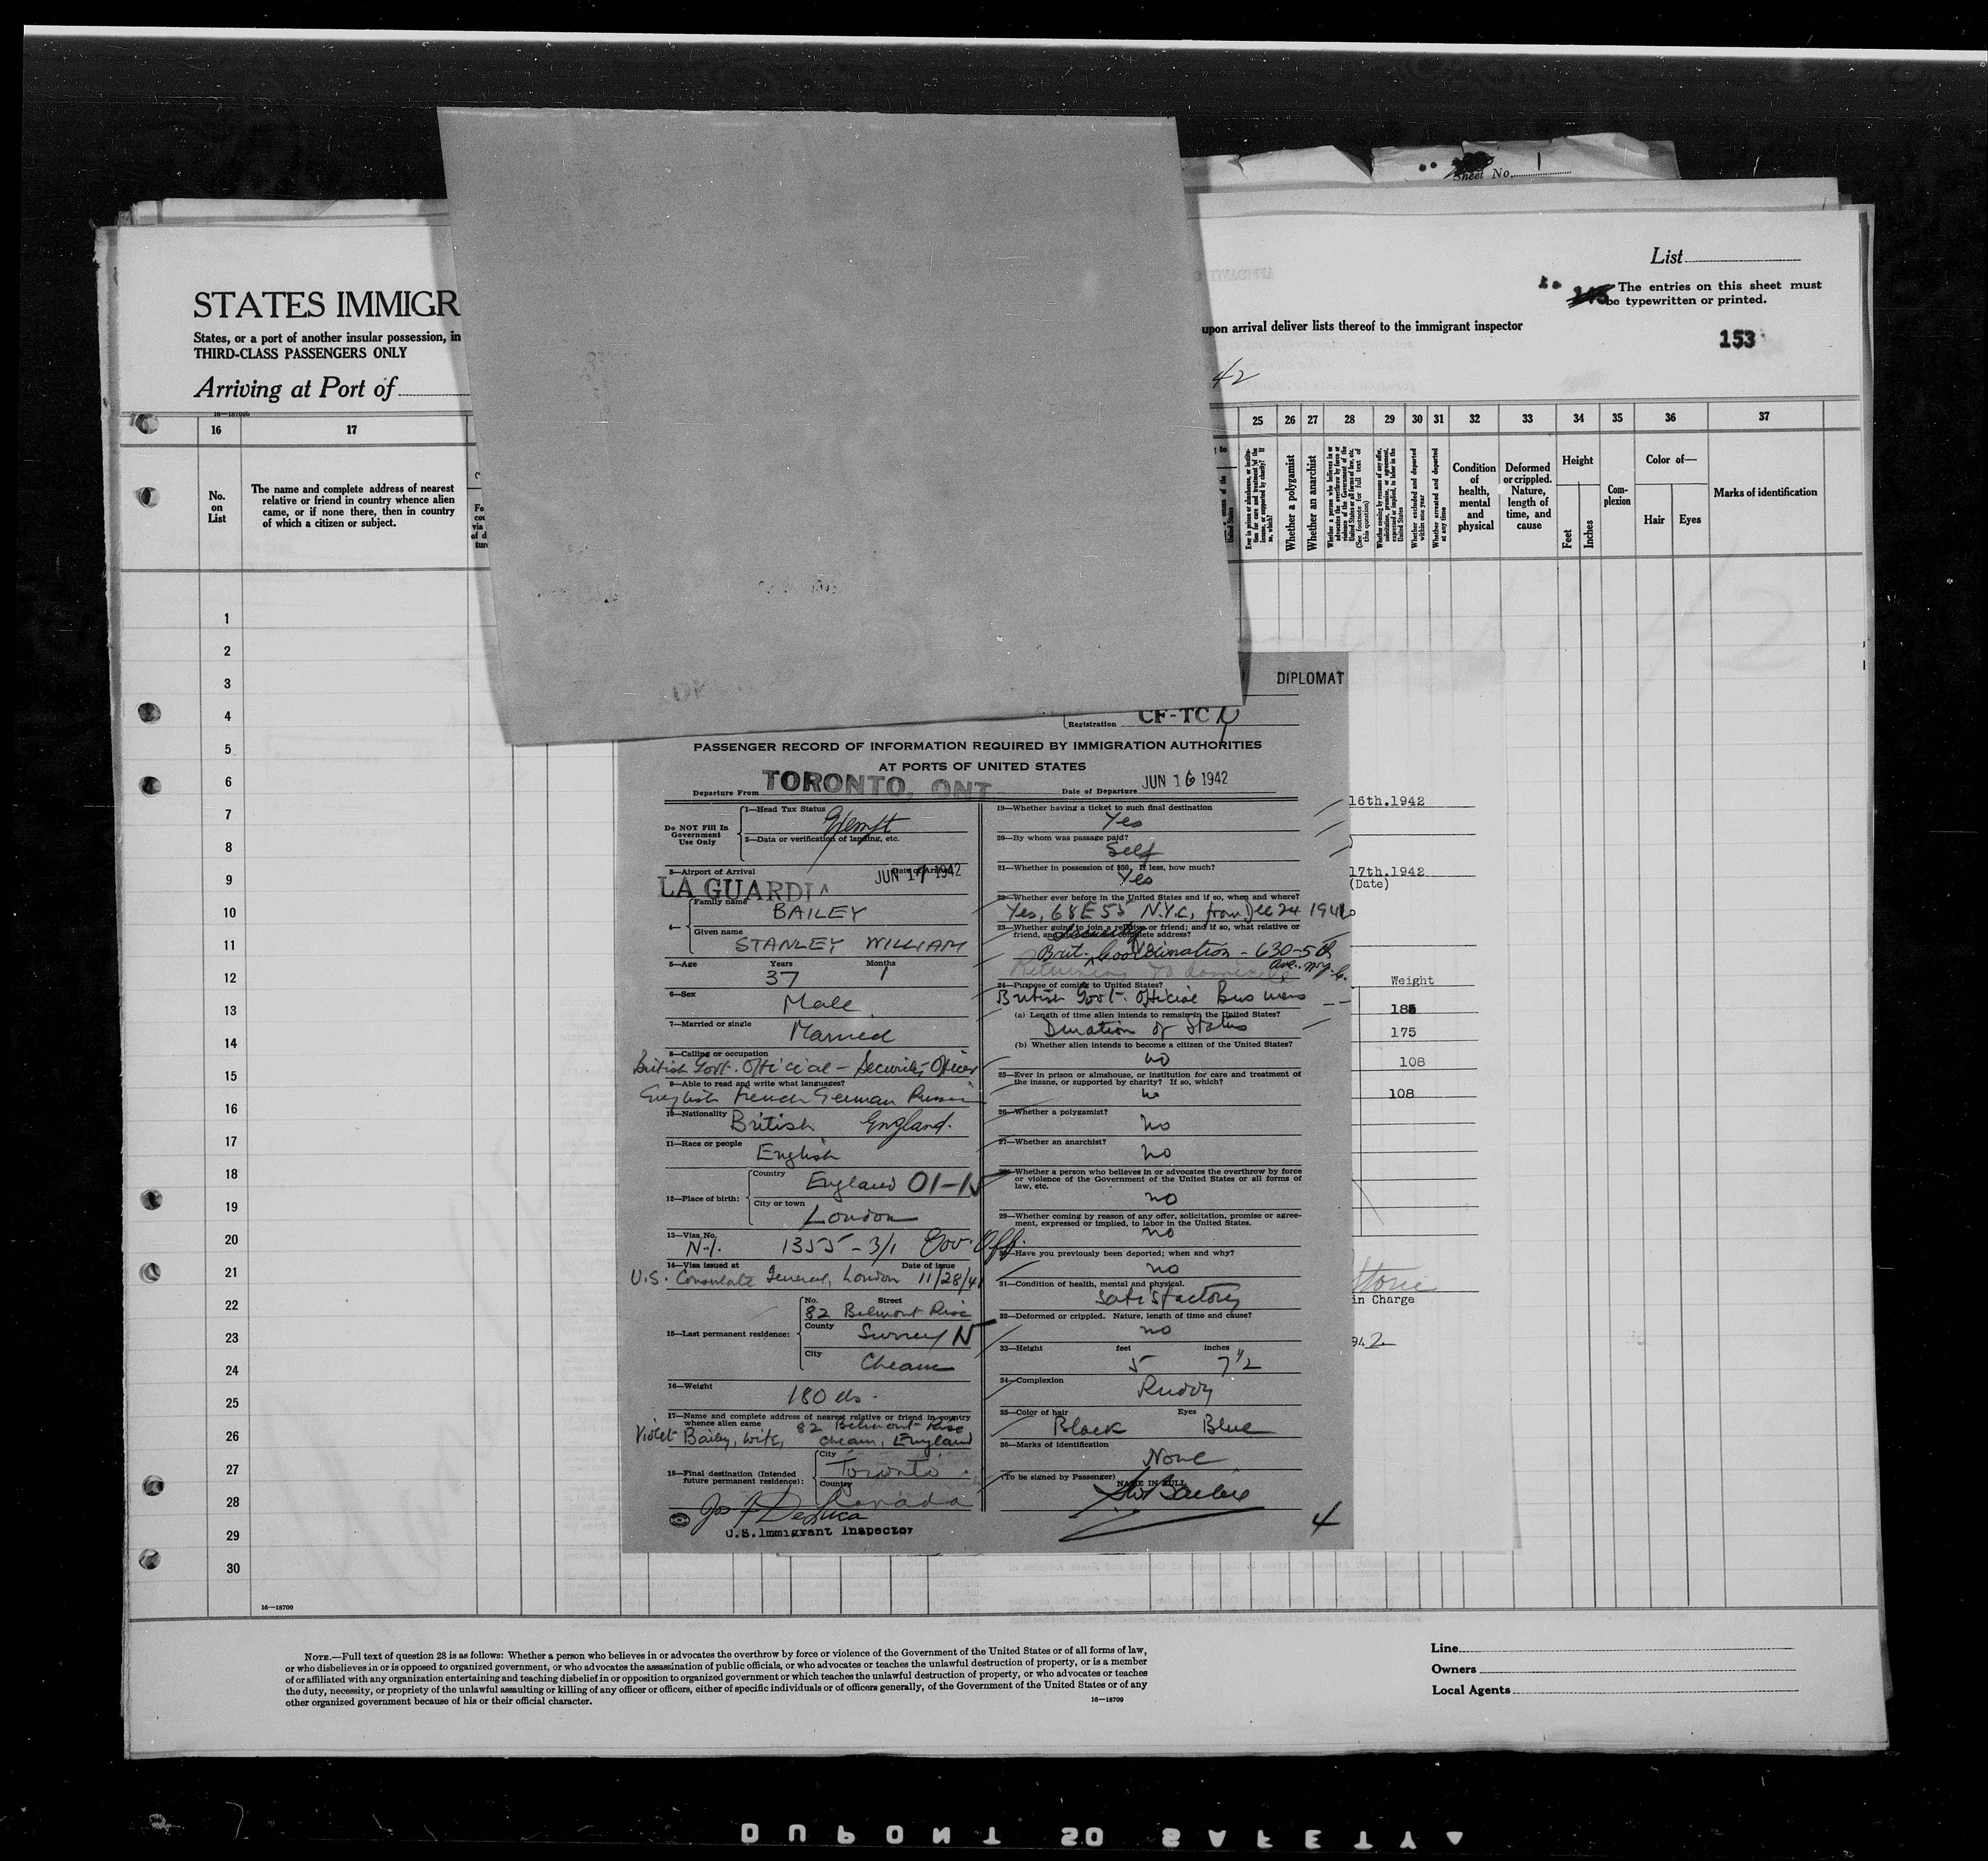 Sheet No. 1
List
The entries on this sheet must
be typewritten or printed.
153
STATES IMMIGR
States, or a port of another insular possession, in
THIRD-CLASS PASSENGERS ONLY
upon arrival deliver lists thereof to the immigrant inspector
Arriving at Port of
42
16—18709b
16 17 25 26 27 28 29 30 31 32 33 34 35 36 37
No. on List
The name and complete address of nearest
relative or friend in country whence alien
came, or if none there, then in country
of which a citizen or subject.
Whether a polygamist
Whether an anarchist
Whether excluded and deported within one year
Whether arrested and deported at any time
Condition of health, mental and physical
Deformed or crippled. Nature, length of time, and cause
Height
Feet
Inches
Com-plexion
Color of—
Hair
Eyes
Marks of identification
1
2
3
4
5
6
7
8
9
10
11
12
13
14
15
16
17
18
19
20
21
22
23
24
25
26
27
28
29
30
16—18709
DIPLOMAT
Registration CF-TC
PASSENGER RECORD OF INFORMATION REQUIRED BY IMMIGRATION AUTHORITIES
AT PORTS OF UNITED STATES
Departure From TORONTO, ONT
Date of Departure JUN 16 1942
Do NOT Fill In
Government
Use Only
1—Head Tax Status
Exempt
2—Data or verification of landing, etc.
3—Airport of Arrival
LA GUARDIA
JUN 17 1942
4— Family name
BAILEY
Given name
STANLEY WILLIAM
5—Age Years Months
37 1
6—Sex
Male
7—Married or single
Married
8—Calling or occupation
British Govt. Official - Security Officer
9—Able to read and write what languages?
English French German Russian
10—Nationality
British England.
11—Race or people
English
12—Place of birth:
Country
England 01-N
City or town
London
13—Visa No.
N-1. 1355-3/1 Gov. Off.
14—Visa issued at Date of issue
U.S. Consulate General, London 11/28/41
15—Last permanent residence:
No. Street
82 Belmont Rise
County
Surrey N
City
Cheam
16—Weight
180 lbs.
17—Name and complete address of nearest relative or friend in country
whence alien came
82 Belmont Rise
Violet Bailey, wife, Cheam, England
18—Final destination (Intended
future permanent residence):
City
Toronto
Country
Canada
U.S. Immigrant Inspector
19—Whether having a ticket to such final destination
Yes
20—By whom was passage paid?
Self
21—Whether in possession of $50. If less, how much?
Yes
22—Whether ever before in the United States and if so, when and where?
Yes, 68 E 55 N.Y.C. from Dec 24 1941
23—Whether going to join a relative or friend; and if so, what relative or
friend, and his name and complete address?
Brit. Coordination - 630-5th
Ave. N.Y.C.
Returning to domicile
24—Purpose of coming to United States?
British Govt. Official Business
(a) Length of time alien intends to remain in the United States?
Duration of Status
(b) Whether alien intends to become a citizen of the United States?
no
25—Ever in prison or almshouse, or institution for care and treatment of
the insane, or supported by charity? If so, which?
no
26—Whether a polygamist?
no
27—Whether an anarchist?
no
28—Whether a person who believes in or advocates the overthrow by force
or violence of the Government of the United States or all forms of
law, etc.
no
29—Whether coming by reason of any offer, solicitation, promise or agree-
ment, expressed or implied, to labor in the United States.
no
30—Have you previously been deported; when and why?
no
31—Condition of health, mental and physical.
Satisfactory
32—Deformed or crippled. Nature, length of time and cause?
no
33—Height feet inches
5 7 1/2
34—Complexion
Ruddy
35—Color of hair Eyes
Black Blue
36—Marks of identification
None
(To be signed by Passenger)
NAME IN FULL
4
16th.1942
17th.1942
(Date)
Weight
175
108
108
in Charge
942
NOTE.—Full text of question 28 is as follows: Whether a person who believes in or advocates the overthrow by force or violence of the Government of the United States or of all forms of law,
or who disbelieves in or is opposed to organized government, or who advocates the assassination of public officials, or who advocates or teaches the unlawful destruction of property, or is a member
of or affiliated with any organization entertaining and teaching disbelief in or opposition to organized government or which teaches the unlawful destruction of property, or who advocates or teaches
the duty, necessity, or propriety of the unlawful assaulting or killing of any officer or officers, either of specific individuals or of officers generally, of the Government of the United States or of any
other organized government because of his or their official character.
16—18709
Line
Owners
Local Agents
DUPONT SO SAFETY